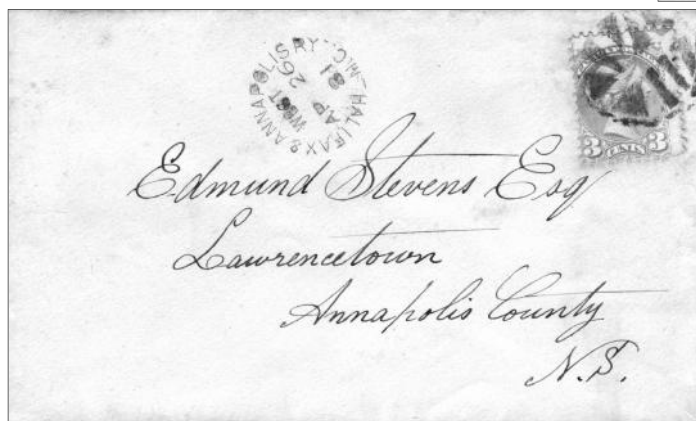 HALIFAX & ANNAPOLIS RY. M.C.
WEST
AP 26
81
3 CENTS 3
Edmund Stevens Esq
Lawrencetown
Annapolis County
N.S.